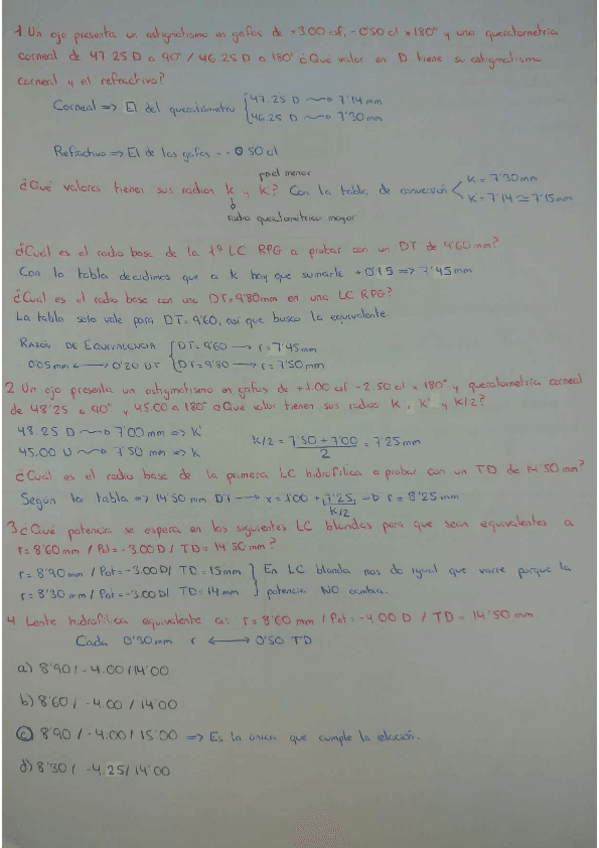 1. Un ojo presenta un astigmatismo en gafas de +3.00 esf, -0'50 cil x 180º y una queratometría
corneal de 47.25 D a 90º / 46.25 D a 180º ¿Qué valor en D tiene su astigmatismo
corneal y el refractivo?
Corneal => El del queratómetro { 47.25 D ~~> 7'14 mm
46.25 D ~~> 7'30 mm
Refractivo => El de las gafas - - 0 50 cil
pael menor
¿Qué valores tienen sus radios k y k'? Con la tabla de conversión < k = 7'30 mm
k = 7'14 ≃ 7'15 mm
radio queratométrico mayor
¿Cuál es el radio base de la 1ª LC RPG a probar con un DT de 9'60 mm?
Con la tabla decidimos que a k hay que sumarle +0'15 => 7'45 mm
¿Cuál es el radio base con una DT=9'80mm en una LC RPG?
La tabla solo vale para DT=9'60, así que busco la equivalente.
RAZÓN DE EQUIVALENCIA { DT=9'60 → r=7'45 mm
0'05 mm ↔ 0'20 DT DT=9'80 → r=7'50 mm
2 Un ojo presenta un astigmatismo en gafas de +1.00 esf -2.50 cil x 180º y queratometría corneal
de 48'25 a 90º y 45.00 a 180º ¿Qué valor tienen sus radios k, k' y k/2?
48.25 D ~~> 7'00 mm => k'
45.00 D ~~> 7'50 mm => k
k/2 = 7'50 + 7'00 / 2 = 7'25 mm
¿Cuál es el radio base de la primera LC hidrofílica a probar con un TD de 14'50 mm?
Según la tabla => 14'50 mm DT → x = 1'00 + 7'25 → r = 8'25 mm
k/2
3 ¿Qué potencia se espera en los siguientes LC blandas para que sean equivalentes a
r = 8'60 mm / Pot = -3.00 D / TD = 14'50 mm?
r = 8'90 mm / Pot = -3.00 D / TD = 15 mm } En LC blanda nos da igual que varíe porque la
r = 8'30 mm / Pot = -3.00 D / TD = 14 mm potencia NO cambia.
4. Lente hidrofílica equivalente a: r = 8'60 mm / Pot = -4.00 D / TD = 14'50 mm
Cada 0'30 mm r ↔ 0'50 TD
a) 8'90 / -4.00 / 14'00
b) 8'60 / -4.00 / 14'00
c) 8'90 / -4.00 / 15'00 => Es la única que cumple la relación.
d) 8'30 / -4.25 / 14'00